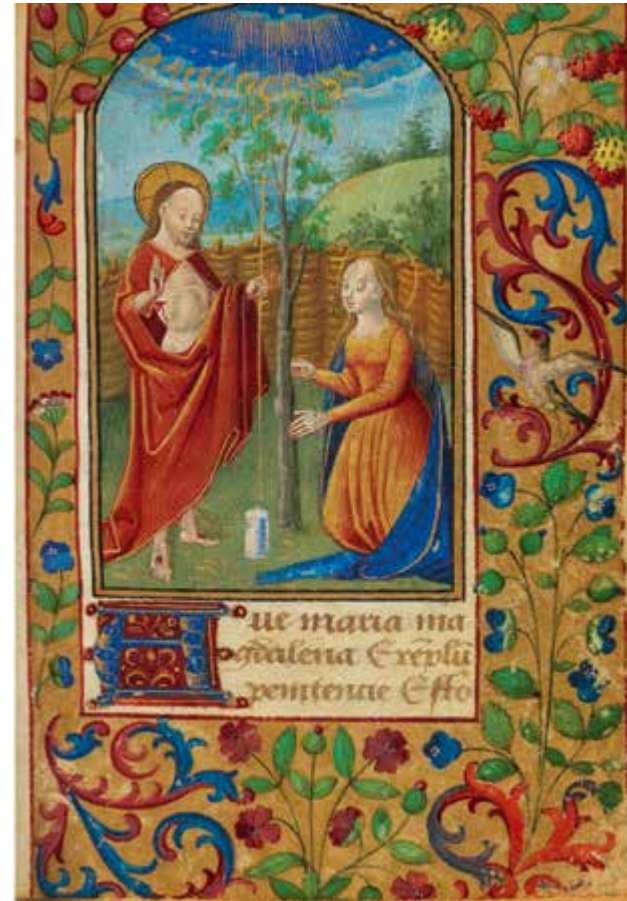 Aue maria ma
gdalena Exẽplũ
penitencie Effo